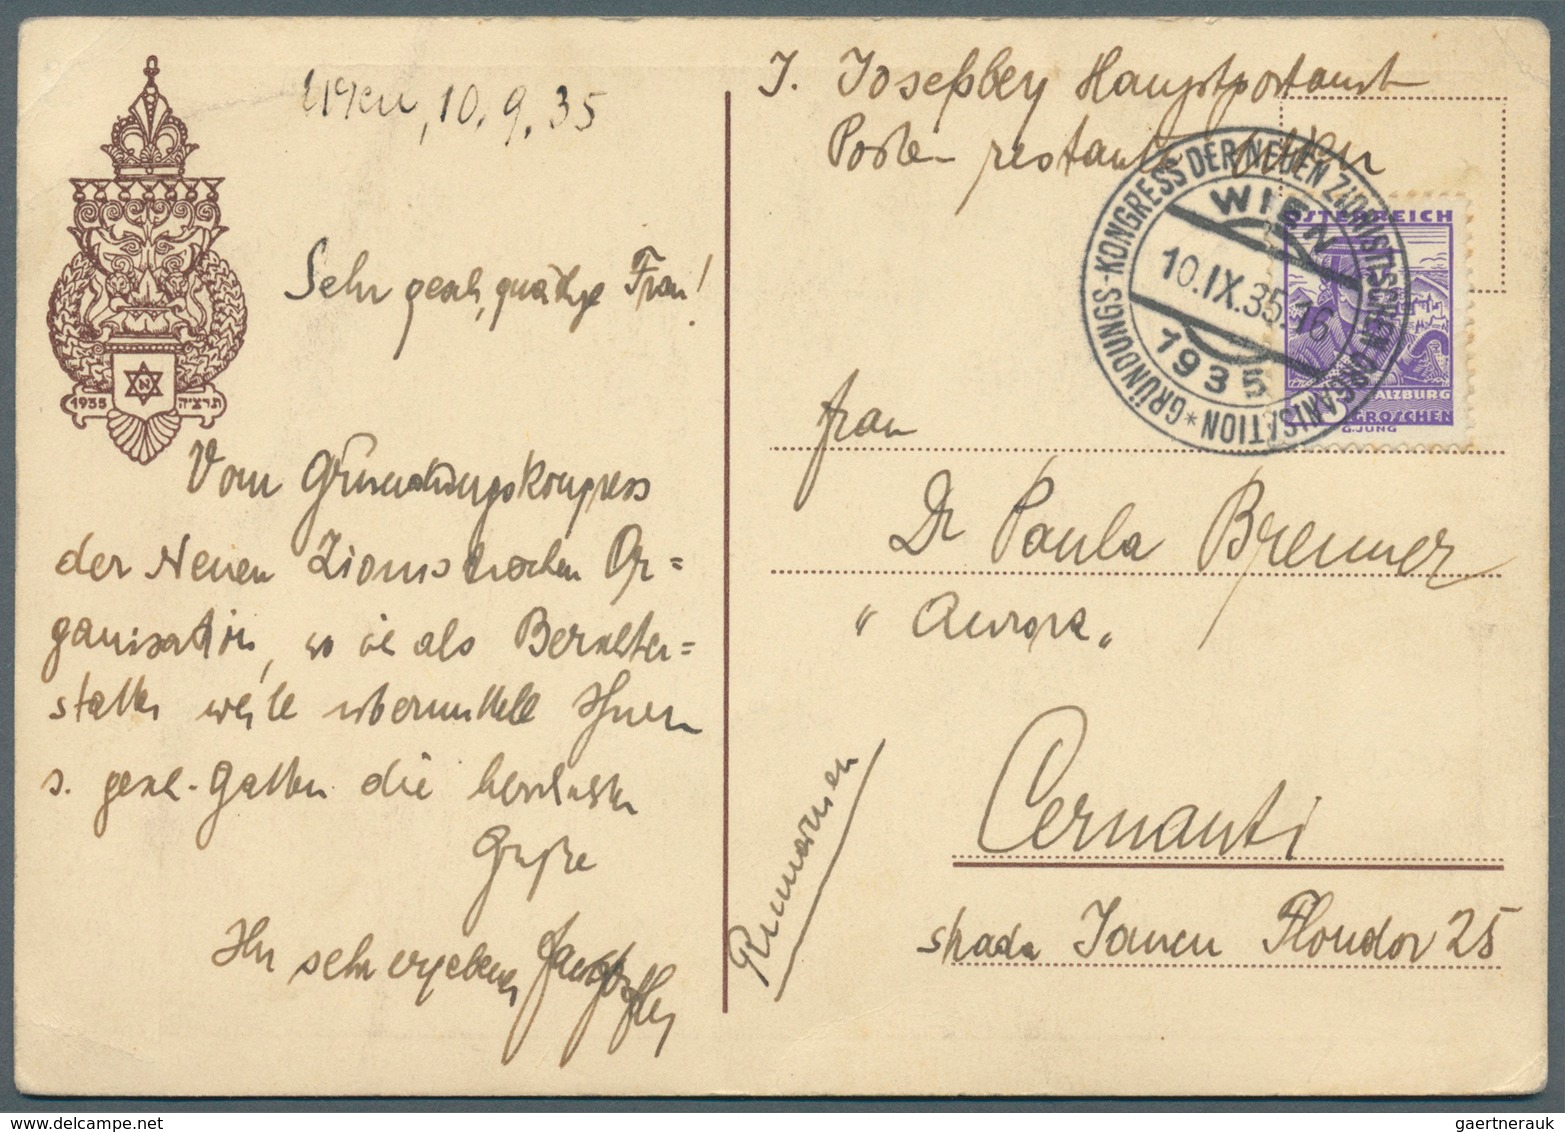 Wien, 10.9.35
Sehr geeh. gnädige Frau!
1935 תרצ"ה
N
Vom Gründungskongress
der Neuen Zionistischen Or=
ganisation, wo ich als Berichter=
statter weile übermittle Ihnen
u. geehr. Gatten die herzlichsten
Grüße
Ihr sehr ergebener
J. Josephbey Hauptpostamt
Poste restante Wien
GRÜNDUNGS-KONGRESS DER NEUEN ZIONISTISCHEN ORGANISATION *
WIEN
10.IX.35.16
1935
ÖSTERREICH
SALZBURG
GROSCHEN
G.JUNG
Frau
Dr Paula Brenner
"Aurora"
Cernauti
strada Iancu Flondor 25
Rumänien
gaertnerauk